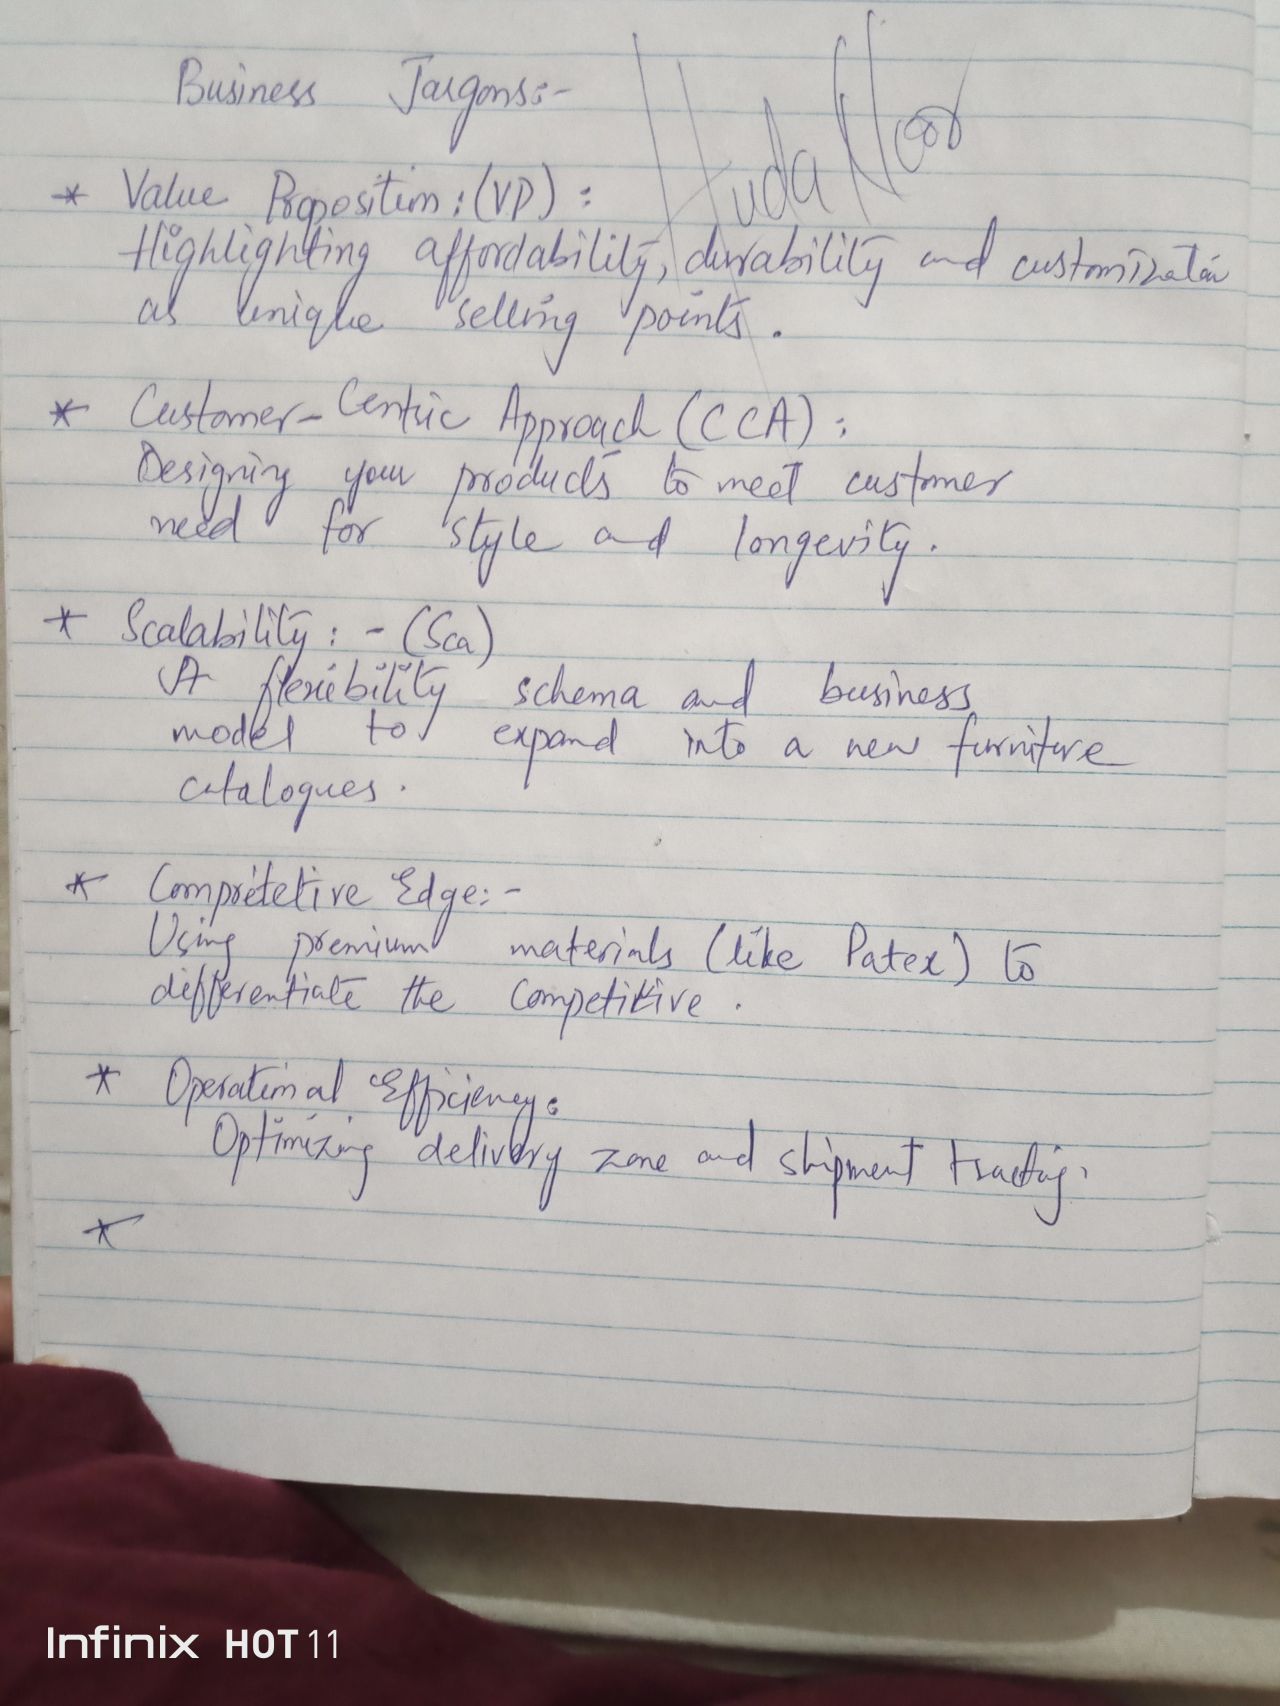 Business Jargons:-
Huda Noor
* Value Proposition: (VP) :
Highlighting affordability, durability and customization
as unique selling points.
* Customer-Centric Approach (CCA) :
Designing your products to meet customer
need for style and longevity.
* Scalability: - (Sca)
A flexibility schema and business
model to expand into a new furniture
catalogues.
* Competetive Edge:-
Using premium materials (like Patex) to
differentiate the Competitive.
* Operational Efficiency:
Optimizing delivery zone and shipment tracting.
*
Infinix HOT 11